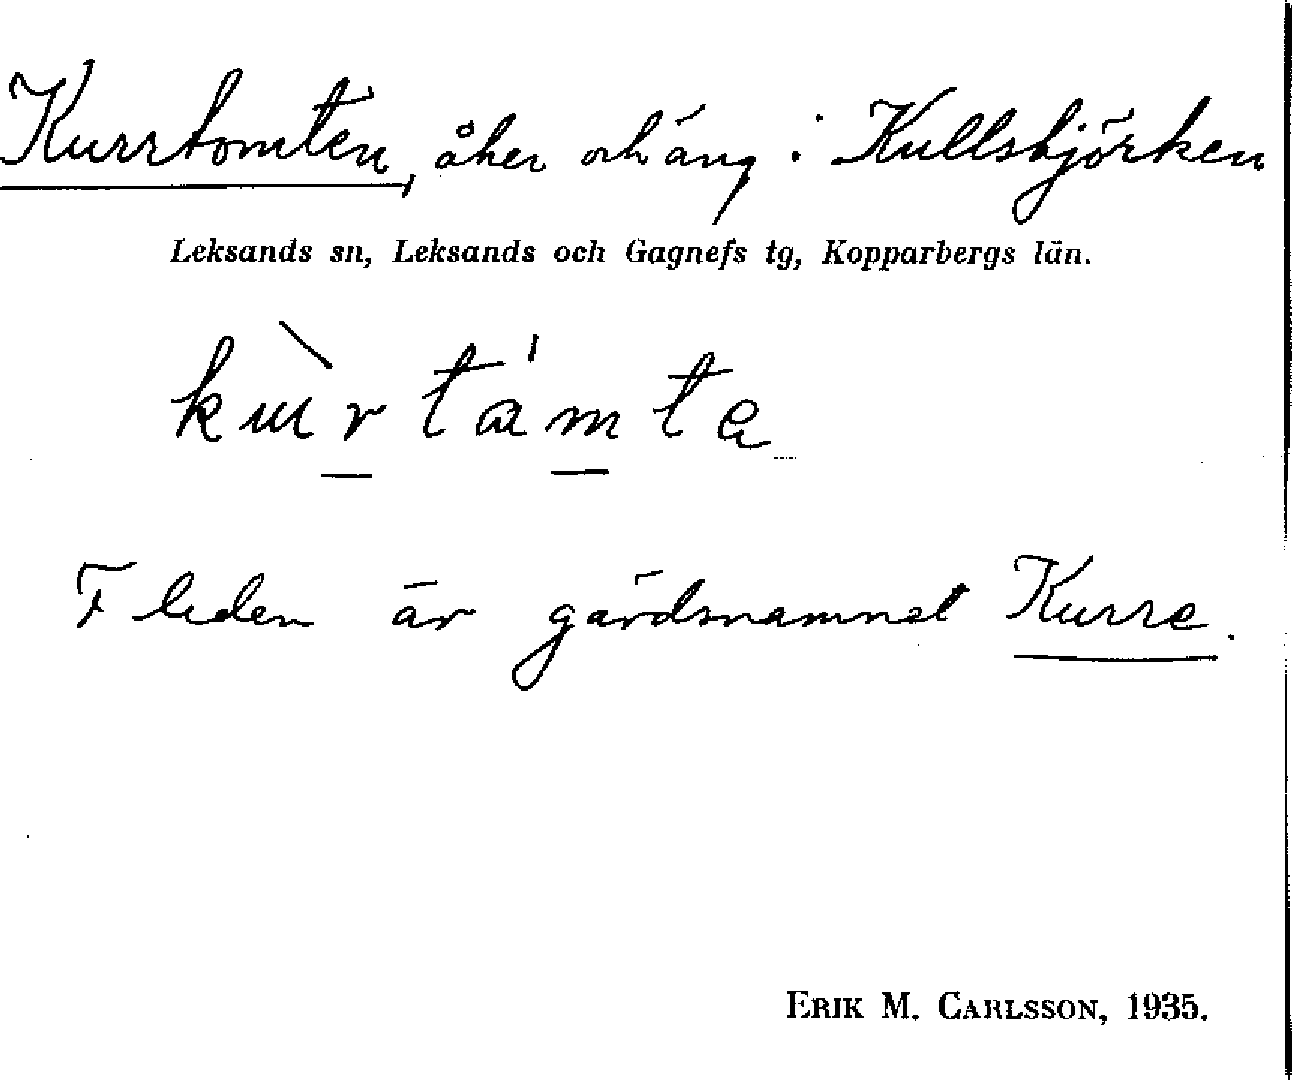 Kurrtomten, åker och äng i Kullsbjörken
Leksands sn, Leksands och Gagnefs tg, Kopparbergs län.
F leden är gårdsnamnet Kurre.
ERIK M. CARLSSON, 1935.